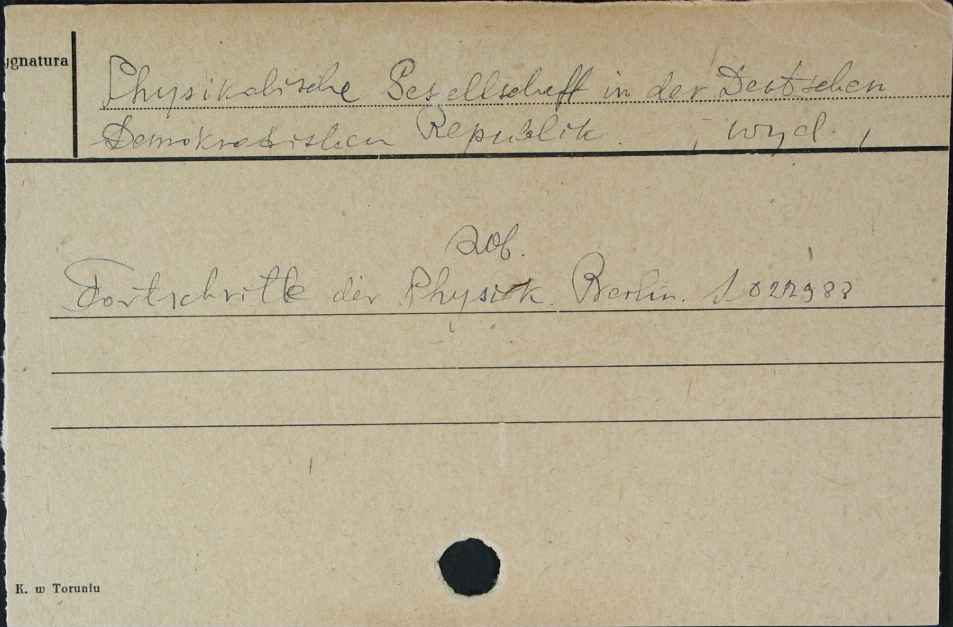 ygnatura
Physikalische Gesellschaft in der Deutschen
Demokratischen Republik. , wyd. ,
zob.
Fortschritte der Physik. Berlin.
K. w Toruniu